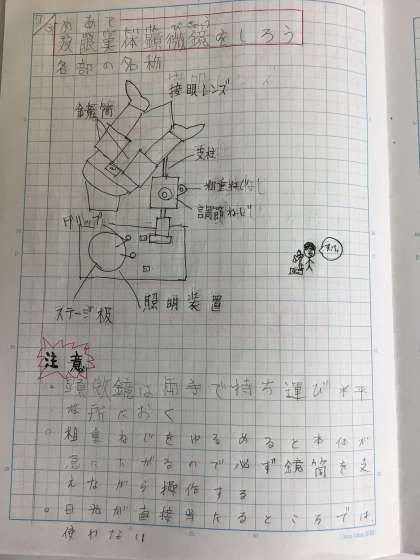 めあて
双眼実体顕微鏡をしろう
各部の名称
接眼レンズ
鏡筒
支柱
粗動ねじ
調節ねじ
クリップ
ステージ板
照明装置
注意
顕微鏡は両手で持ち運び水平
な所におく
粗動ねじをゆるめると本体が
急に下がるので必ず鏡筒を支
えながら操作する
日光が直接当たるところでは
使わない